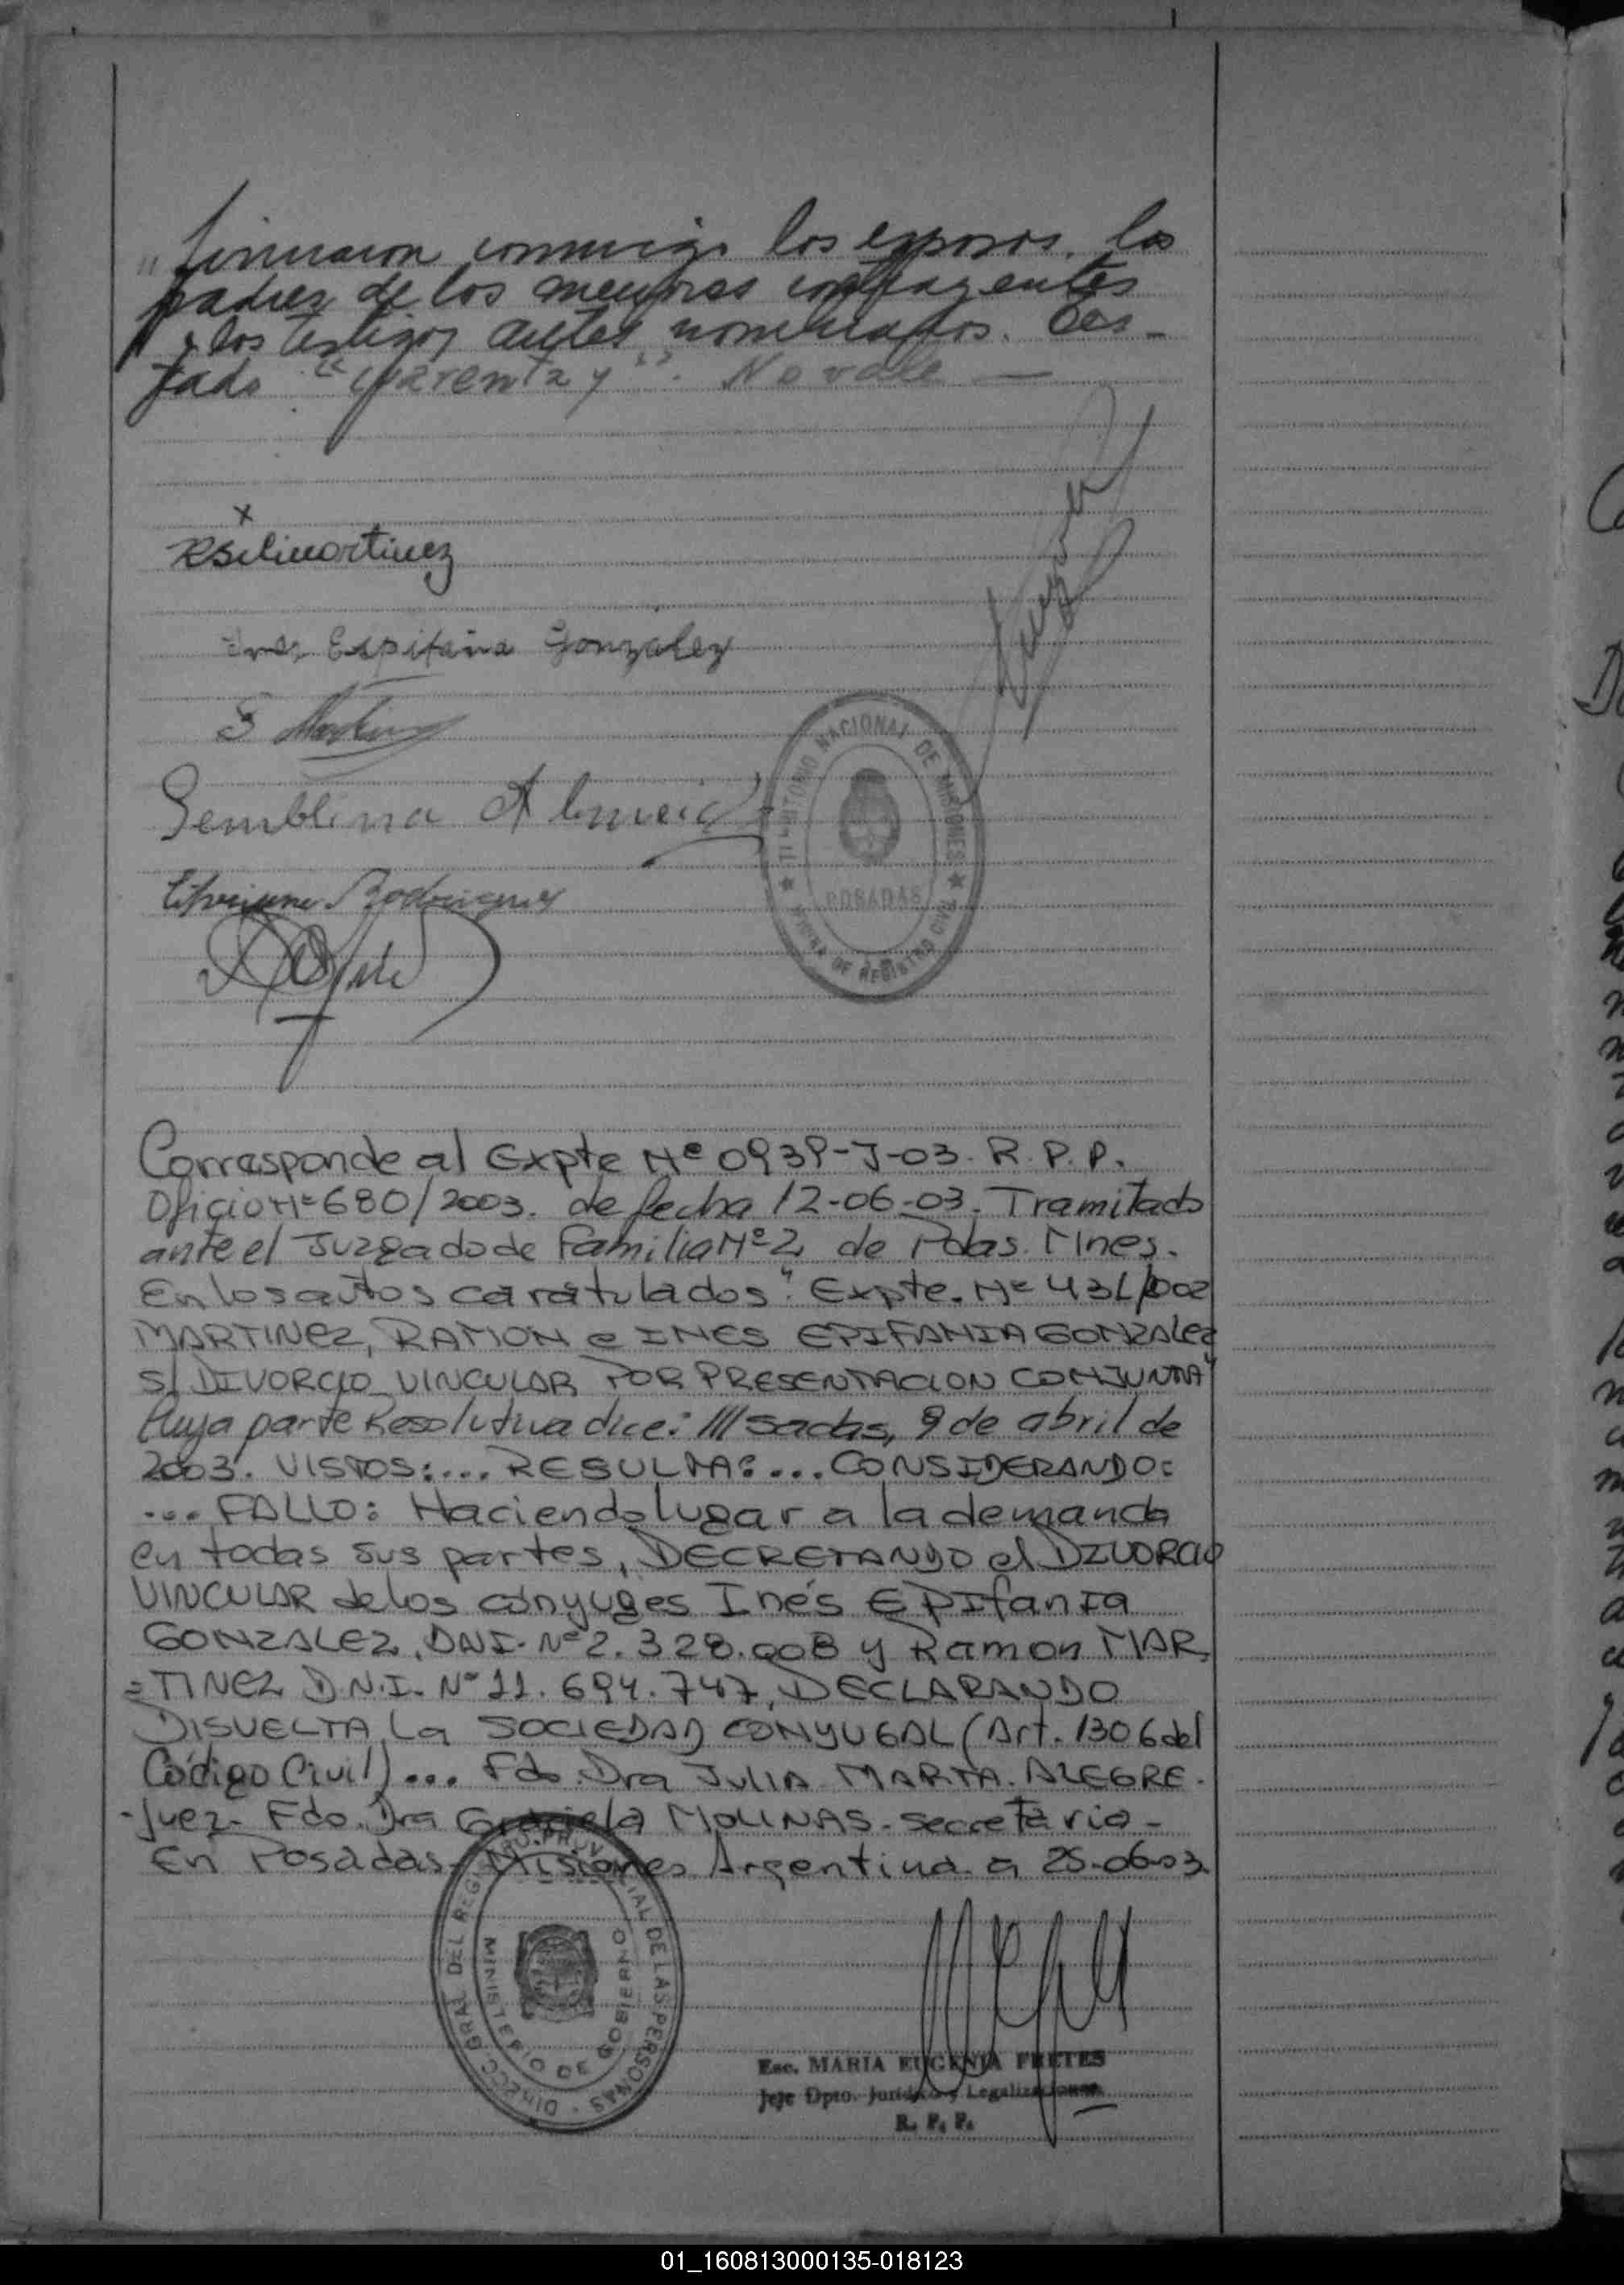 " firmaron conmigo los esposos, los
padres de los menores contrayentes
y los testigos antes nombrados. Tes-
tado: "cuarenta y". No vale —
x
Inés Espifania Gonzalez
S Martinez
Gemblina Almeida
Cipriana Rodriguez
TERRITORIO NACIONAL DE MISIONES
POSADAS
OFICINA DE REGISTRO CIVIL
Corresponde al Expte Nº 0939-J-03. R.P.P.
Oficio Nº 680/2003. de fecha 12-06-03. Tramitado
ante el Juzgado de Familia Nº 2 de Pdas. Mnes.
En los autos caratulados "Expte. Nº 431/2002
MARTINEZ, RAMON e INES EPIFANIA GONZALEZ
S/ DIVORCIO VINCULAR POR PRESENTACION CONJUNTA"
Cuya parte Resolutiva dice: ///sadas, 9 de abril de
2003. VISTOS:... RESULTA:... CONSIDERANDO:
... FALLO: Haciendo lugar a la demanda
en todas sus partes, DECRETANDO el DIVORCIO
VINCULAR de los cónyuges Inés EPIfanIa
GONZALEZ, DNI. Nº 2.328.008 y Ramon MAR
=TINEZ D.N.I. Nº 11.694.747, DECLARANDO
DISUELTA la SOCIEDAD CONYUGAL (Art. 1306 del
Código Civil)... Fdo. Dra JULIA MARTA ALEGRE.
-Juez- Fdo. Dra Graciela MOLINAS. Secretaria-
En Posadas- Misiones Argentina a 25-06-03.
DIRECC. GRAL. DEL REGISTRO PROVINCIAL DE LAS PERSONAS
MINISTERIO DE GOBIERNO
Esc. MARIA EUGENIA FRETES
Jefe Dpto. Jurídico y Legalizaciones
R. P. P.
01_160813000135-018123